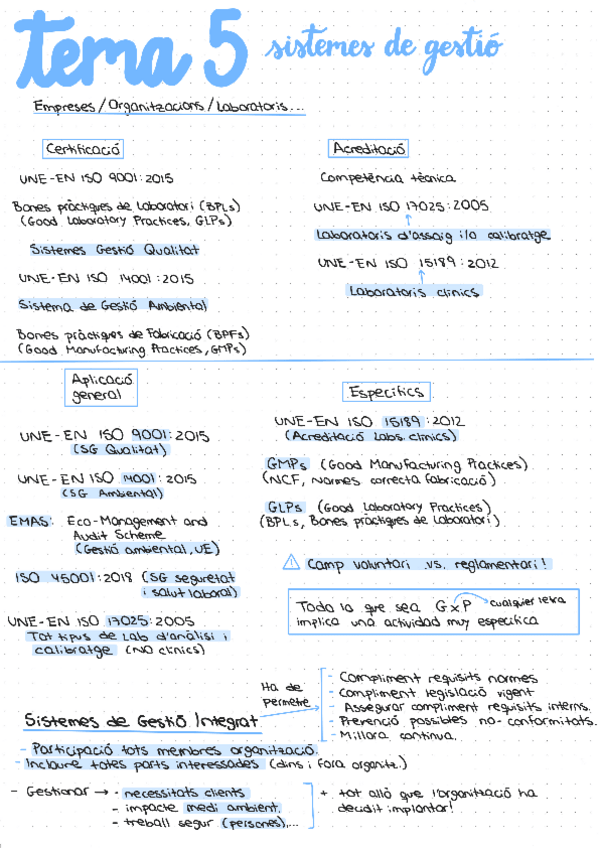 tema 5 sistemes de gestió
Empreses/Organitzacions/Laboratoris...
Certificació
UNE-EN ISO 9001:2015
Bones pràctiques de Laboratori (BPLs)
(Good Laboratory Practices, GLPs)
Sistemes Gestió Qualitat
UNE-EN ISO 14001:2015
Sistema de Gestió Ambiental
Bones pràctiques de Fabricació (BPFs)
(Good Manufacturing Practices, GMPs)
Acreditació
Competència tècnica
UNE-EN ISO 17025:2005
Laboratoris d'assaig i/o calibratge
UNE-EN ISO 15189:2012
Laboratoris clínics
Aplicació
general
UNE-EN ISO 9001:2015
(SG Qualitat)
UNE-EN ISO 14001:2015
(SG Ambiental)
EMAS: Eco-Management and
Audit Scheme
(Gestió ambiental, UE)
ISO 45001:2018 (SG seguretat
i salut laboral)
UNE-EN ISO 17025:2005
Tot tipus de Lab d'anàlisi i
calibratge (NO clínics)
Específics
UNE-EN ISO 15189:2012
(Acreditació Labs. clínics)
GMPs (Good Manufacturing Practices)
(NCF, Normes correcta fabricació)
GLPs (Good Laboratory Practices)
(BPLs, Bones pràctiques de Laboratori)
! Camp voluntari .vs. reglamentari!
Todo lo que sea GxP → cualquier letra
implica una actividad muy específica
Sistemes de Gestió Integrat
Ha de
permetre
- Compliment requisits normes
- Compliment legislació vigent
- Assegurar compliment requisits interns.
- Prevenció possibles no-conformitats.
- Millora contínua.
- Participació tots membres organització.
- Incloure totes parts interessades (dins i fora organitz.)
- Gestionar → - necessitats clients
- impacte medi ambient.
- treball segur (persones),...
+ tot allò que l'organització ha
decidit implantar!